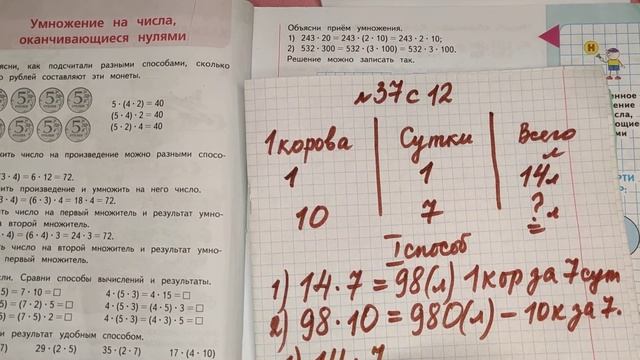 Умножение на числа,
оканчивающиеся нулями
ясни, как подсчитали разными способами, сколько
о рублей составляют эти монеты.
5 5 5
5 5 5
5 · (4 · 2) = 40
(5 · 4) · 2 = 40
(5 · 2) · 4 = 40
жить число на произведение можно разными спосо-
3 · 4) = 6 · 12 = 72.
ить произведение и умножить на него число.
3 · 4) = (6 · 3) · 4 = 18 · 4 = 72.
ть число на первый множитель и результат умно-
а второй множитель.
· 4) = (6 · 4) · 3 = 24 · 3 = 72.
ть число на второй множитель и результат умно-
первый множитель.
ли. Сравни способы вычислений и результаты.
5) = 7 · 10 = □ 4 · (5 · 3) = 4 · 15 = □
5) = (7 · 2) · 5 = □ 4 · (5 · 3) = (4 · 5) · 3 = □
5) = (7 · 5) · 2 = □ 4 · (5 · 3) = (4 · 3) · 5 = □
и результат удобным способом.
7) 29 · (2 · 5) 35 · (2 · 7) 17 · (4 · 10)
Объясни приём умножения.
1) 243 · 20 = 243 · (2 · 10) = 243 · 2 · 10;
2) 532 · 300 = 532 · (3 · 100) = 532 · 3 · 100.
Решение можно записать так.
№37 с 12
1 корова Сутки Всего
л
1 1 14л
10 7 ? л
I способ
1) 14 · 7 = 98(л) 1кор за 7 сут
2) 98 · 10 = 980(л) – 10к за 7.
1) 14 · 7
Н